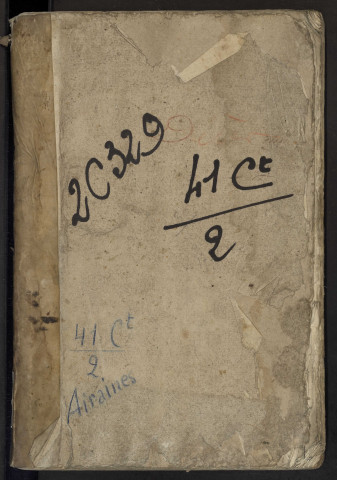 2C329
41 Ct
2
41. Ct
2
Airaines